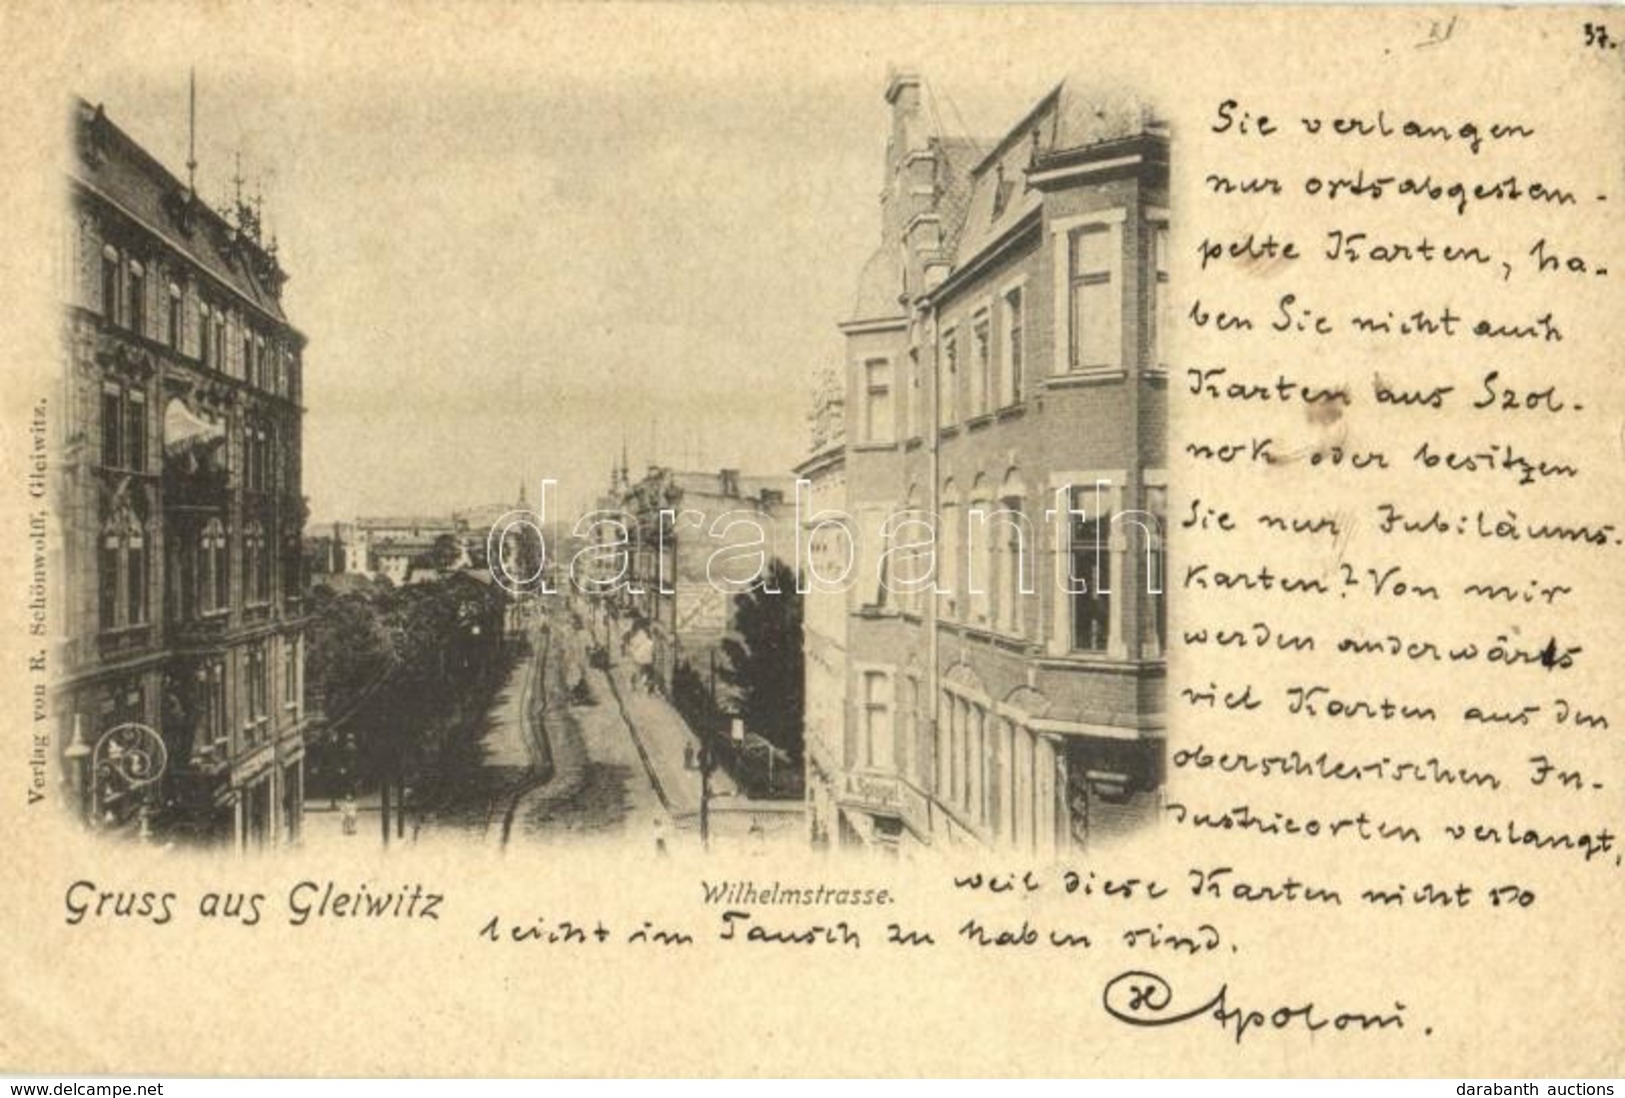 37.
Sie verlangen
nur ortsabgestem-
pelte Karten, ha-
ben Sie nicht auch
Karten aus Szol-
nok oder besitzen
Sie nur Jubiläums-
karten? Von mir
werden anderwärts
viel Karten aus den
oberschlesischen In-
dustrieorten verlangt,
weil diese Karten nicht so
leicht im Tausch zu haben sind.
Apoloni.
Verlag von R. Schönwolff, Gleiwitz.
A. Spiegel
Gruss aus Gleiwitz
Wilhelmstrasse.
darabanth
www.delcampe.net
darabanth auctions